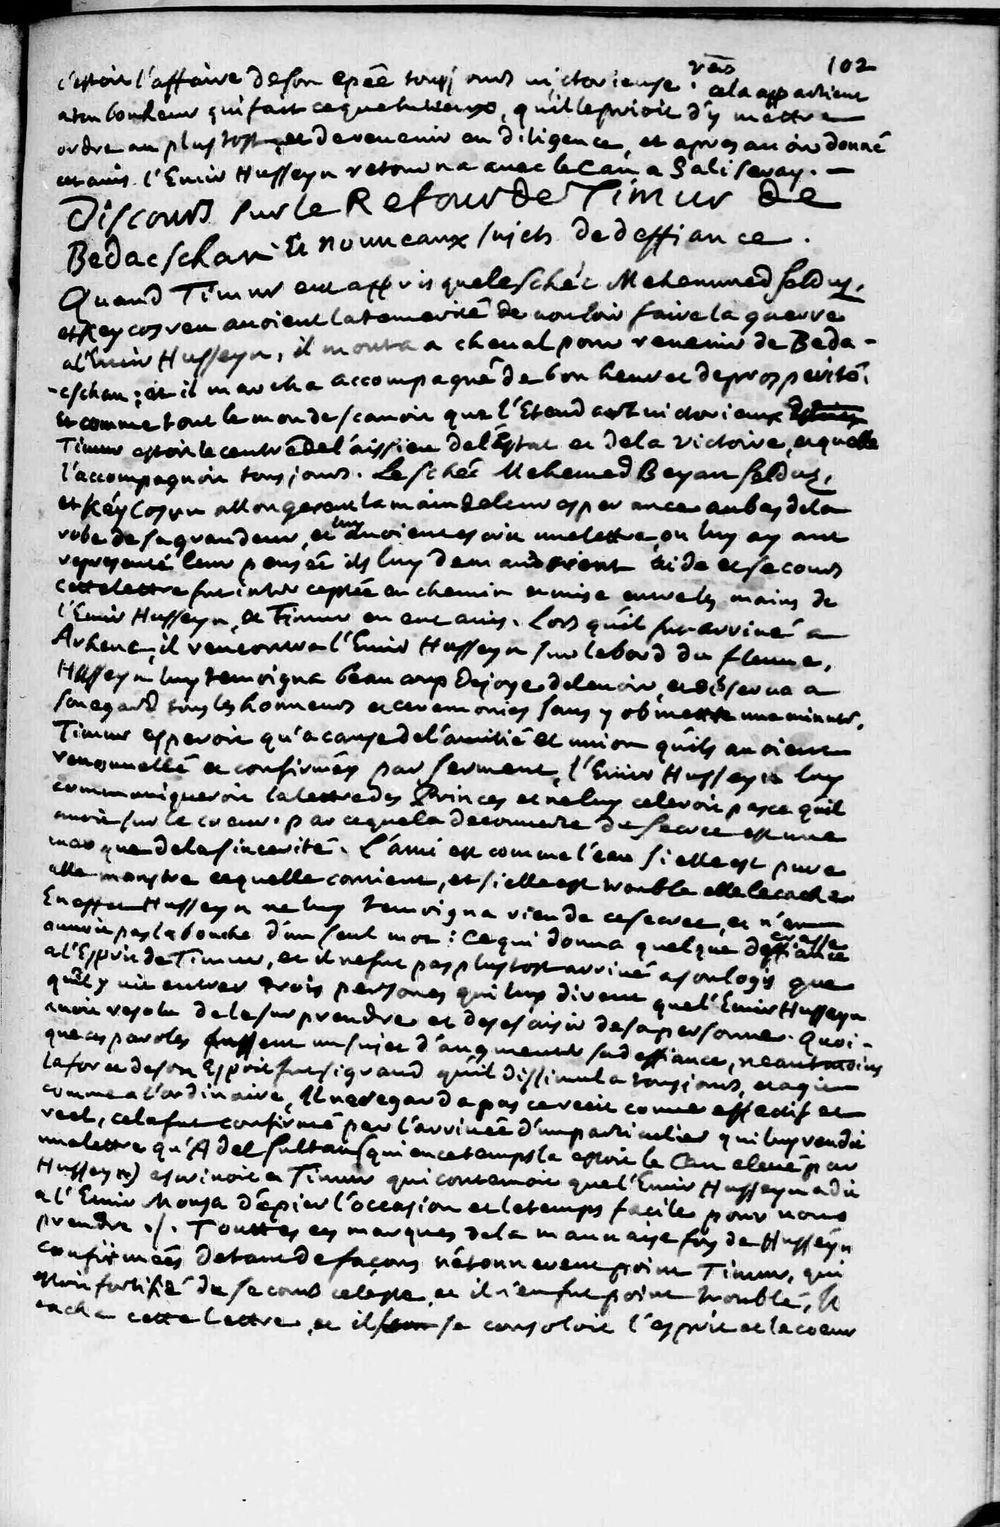 102
c'estoit l'affaire de son epée tousjours victorieuse. vers cela appartient
a ton bonheur qui fait ce que tu veux, qu'il le prioit d'y mettre
ordre au plus tost, et de revenir en diligence, et apres avoir donné
cet avis l'Emir Husseyn retourna avec le Can a Sali Seray. —
Discours sur le Retour de Timur de
Bedacschan et nouveaux sujets de deffiance.
Quand Timur eut appris que le Schéc Mehemmed Selduz,
et Key Cosreu avoient la temerité de vouloir faire la guerre
a l'Emir Husseyn, il monta a cheval pour revenir de Beda-
-cschan; et il marcha accompagné de bonheur et de prosperité.
Et comme tout le monde scavoit que l'Etendart victorieux
Timur estoit le centre de l'aissieu de l'Estat et de la victoire, et qu'elle
l'accompagnoit tousjours. Le Schéc Mehemed Beyan Selduz,
et Key Cosreu allongerent la main de leur esperance au bas de la
robe de sa grandeur, et luy avoient escrit une lettre, ou luy ayant
representé leur pensée ils luy demandoient aide et secours
cette lettre fut interceptée en chemin et mise entre les mains de
l'Emir Husseyn, et Timur en eut avis. Lors qu'il fut arrivé a
Arhenc, il rencontra l'Emir Husseyn sur le bord du fleuve,
Husseyn luy temoigna beaucoup de joye de le voir, et observa a
son egard tous les honneurs et ceremonies sans y obmettre une minute.
Timur esperoit qu'a cause de l'amitié et union qu'ils avoient
renouvellée et confirmée par serment, l'Emir Husseyn luy
communiqueroit la lettre des Princes et ne luy celeroit pas ce qu'il
avoit sur le coeur. par ce que la decouverte du secret est une
marque de la sincerité. L'ami est comme l'eau si elle est pure
elle monstre ce qu'elle contient, et si elle est trouble elle le cache
En effet Husseyn ne luy temoigna rien de ce secret, et n'en
ouvrit pas la bouche d'un seul mot: ce qui donna quelque deffiance
a l'Esprit de Timur, et il ne fut pas plustost arrivé a son logis que
qu'il y vit entrer trois personnes qui luy dirent que l'Emir Husseyn
avoit resolu de le surprendre et de se saisir de sa personne. Quoi-
que ces paroles fussent un sujet d'augmenter sa deffiance, neantmoins
la force de son Esprit fut si grand qu'il dissimula tousjours, et agit
comme a l'ordinaire, Il ne regarda pas ce recit comme effectif et
reel, cela fut confirmé par l'arrivée d'un particulier qui luy rendit
une lettre qu'Adel Sultan (qui en ce temps la estoit le Can elevé par
Husseyn) escrivoit a Timur qui contenoit que l'Emir Husseyn a dit
a l'Emir Mousa d'epier l'occasion et le temps facile pour nous
prendre ./. Touttes ces marques de la mauvaise foy de Husseyn
confirmées de tant de façons n'étonnerent point Timur, qui
estoit fortifié du secours celeste, et il n'en fut point troublé, Il
cacha cette lettre, et il se consoloit l'esprit et le coeur